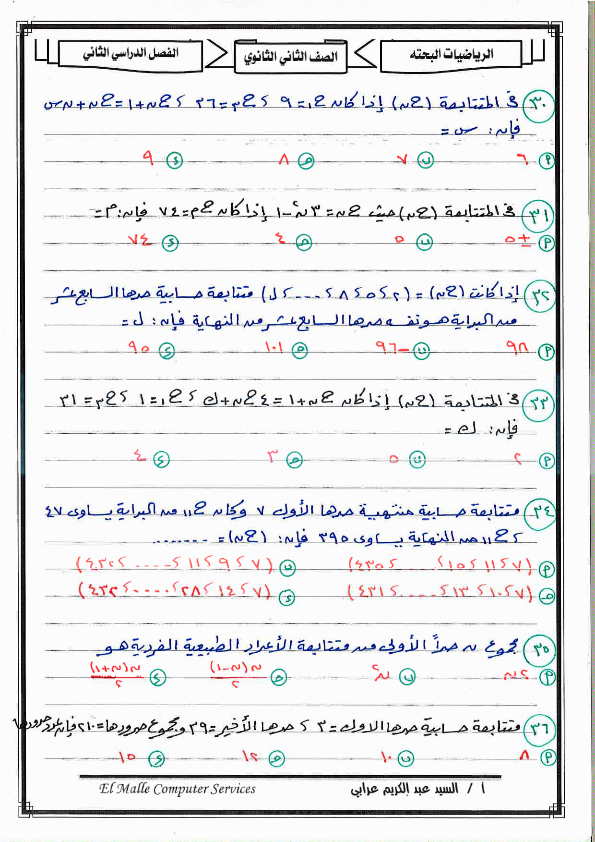 الرياضيات البحته
الصف الثاني الثانوي
الفصل الدراسي الثاني
٣٠ فى المتتابعة (ح ن) إذا كان ح١ = ٩ ، ح٣ = ٢٦ ، ح ن+١ = ح ن + ن س
فإن: س =
أ ٦ ب ٧ ح ٨ ء ٩
٣١ فى المتتابعة (ح ن) حيث ح ن = ٣ن٢ - ١ إذا كان ح م = ٧٤ فإن: م =
أ ±٥ ب ٥ ح ٤ ء ٧٤
٣٢ إذا كانت (ح ن) = (٢ ، ٥ ، ٨ ، ... ، ل) متتابعة حسابية حدها السابع عشر
من البداية هو نفسه حدها السابع عشر من النهاية فإن: ل =
أ ٩٨ ب -٩٦ ح ١٠١ ء ٩٥
٣٣ فى المتتابعة (ح ن) إذا كان ح ن+١ = ٤ ح ن + ك ، ح١ = ١ ، ح٣ = ٣١
فإن: ك =
أ ٢ ب ٥ ح ٣ ء ٤
٣٤ متتابعة حسابية منتهية حدها الأول ٧ وكان ح١١ من البداية يساوى ٤٧
، ح١١ من النهاية يساوى ٣٩٥ فإن: (ح ن) = .......
أ (٧ ، ١١ ، ١٥ ، .... ، ٤٣٥) ب (٧ ، ٩ ، ١١ ، .... ، ٤٣٢)
ح (٧ ، ١٠ ، ١٣ ، .... ، ٤٣١) ء (٧ ، ١٤ ، ٢٨ ، .... ، ٤٣٢)
٣٥ مجموع ن حداً الأولى من متتابعة الأعداد الطبيعية الفردية هو
أ ٢ن ب ن٢ ح ن(ن-١)/٢ ء ن(ن+١)/٢
٣٦ متتابعة حسابية حدها الاول = ٣ ، حدها الأخير = ٣٩ ومجموع حدودها = ٢١٠ فإن عدد حدودها
أ ٨ ب ١٠ ح ١٢ ء ١٥
أ / السيد عبد الكريم عرابي
El Malle Computer Services